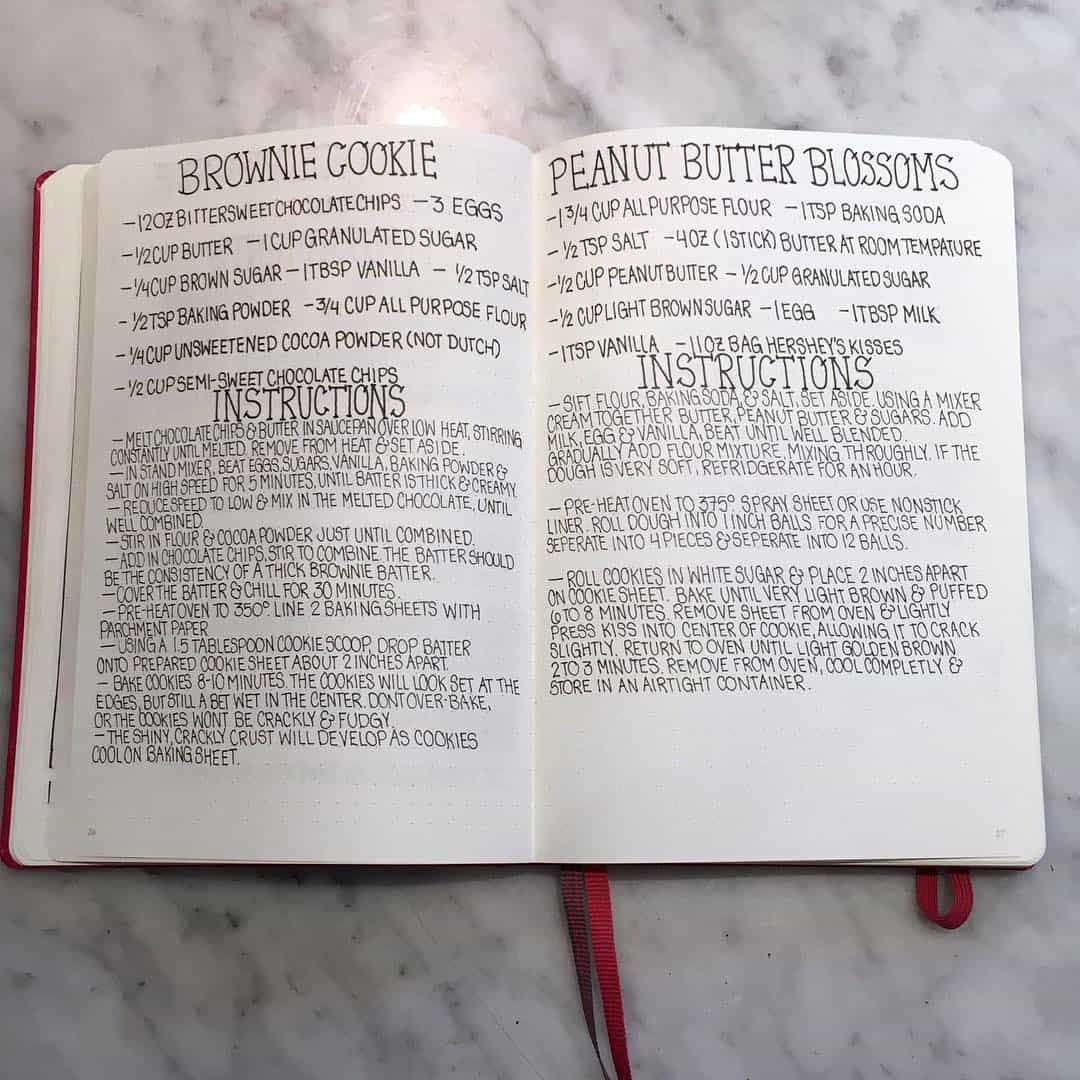 BROWNIE COOKIE
-12OZ BITTERSWEET CHOCOLATE CHIPS -3 EGGS
-1/2 CUP BUTTER -1 CUP GRANULATED SUGAR
-1/4 CUP BROWN SUGAR -1 TBSP VANILLA - 1/2 TSP SALT
-1/2 TSP BAKING POWDER -3/4 CUP ALL PURPOSE FLOUR
-1/4 CUP UNSWEETENED COCOA POWDER (NOT DUTCH)
-1/2 CUP SEMI-SWEET CHOCOLATE CHIPS
INSTRUCTIONS
-MELT CHOCOLATE CHIPS & BUTTER IN SAUCEPAN OVER LOW HEAT, STIRRING
CONSTANTLY UNTIL MELTED. REMOVE FROM HEAT & SET ASIDE.
-IN STAND MIXER, BEAT EGGS, SUGARS, VANILLA, BAKING POWDER &
SALT ON HIGH SPEED FOR 5 MINUTES, UNTIL BATTER IS THICK & CREAMY.
-REDUCE SPEED TO LOW & MIX IN THE MELTED CHOCOLATE, UNTIL
WELL COMBINED.
-STIR IN FLOUR & COCOA POWDER JUST UNTIL COMBINED.
-ADD IN CHOCOLATE CHIPS. STIR TO COMBINE. THE BATTER SHOULD
BE THE CONSISTENCY OF A THICK BROWNIE BATTER.
-COVER THE BATTER & CHILL FOR 30 MINUTES.
-PRE-HEAT OVEN TO 350° LINE 2 BAKING SHEETS WITH
PARCHMENT PAPER
-USING A 1.5 TABLESPOON COOKIE SCOOP, DROP BATTER
ONTO PREPARED COOKIE SHEET ABOUT 2 INCHES APART.
- BAKE COOKIES 8-10 MINUTES. THE COOKIES WILL LOOK SET AT THE
EDGES, BUT STILL A BET WET IN THE CENTER. DONT OVER-BAKE,
OR THE COOKIES WONT BE CRACKLY & FUDGY.
-THE SHINY, CRACKLY CRUST WILL DEVELOP AS COOKIES
COOL ON BAKING SHEET.
26
PEANUT BUTTER BLOSSOMS
-1 3/4 CUP ALL PURPOSE FLOUR -1 TSP BAKING SODA
-1/2 TSP SALT -4OZ (1 STICK) BUTTER AT ROOM TEMPATURE
-1/2 CUP PEANUT BUTTER -1/2 CUP GRANULATED SUGAR
-1/2 CUP LIGHT BROWN SUGAR -1 EGG -1 TBSP MILK
-1 TSP VANILLA -11OZ BAG HERSHEY'S KISSES
INSTRUCTIONS
-SIFT FLOUR, BAKING SODA, & SALT, SET ASIDE. USING A MIXER
CREAM TOGETHER BUTTER, PEANUT BUTTER & SUGARS. ADD
MILK, EGG & VANILLA, BEAT UNTIL WELL BLENDED.
GRADUALLY ADD FLOUR MIXTURE, MIXING THROUGHLY. IF THE
DOUGH IS VERY SOFT, REFRIDGERATE FOR AN HOUR.
-PRE-HEAT OVEN TO 375° SPRAY SHEET OR USE NONSTICK
LINER. ROLL DOUGH INTO 1 INCH BALLS FOR A PRECISE NUMBER
SEPERATE INTO 4 PIECES & SEPERATE INTO 12 BALLS.
-ROLL COOKIES IN WHITE SUGAR & PLACE 2 INCHES APART
ON COOKIE SHEET. BAKE UNTIL VERY LIGHT BROWN & PUFFED
6 TO 8 MINUTES. REMOVE SHEET FROM OVEN & LIGHTLY
PRESS KISS INTO CENTER OF COOKIE, ALLOWING IT TO CRACK
SLIGHTLY. RETURN TO OVEN UNTIL LIGHT GOLDEN BROWN
2 TO 3 MINUTES. REMOVE FROM OVEN, COOL COMPLETLY &
STORE IN AN AIRTIGHT CONTAINER.
27